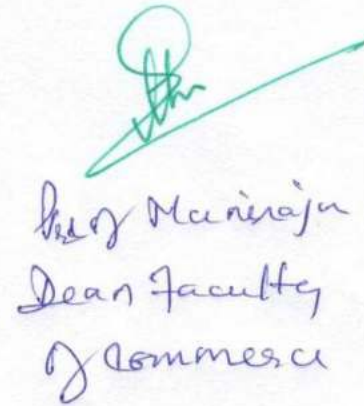 Prof Muniraju
Dean Faculty
of Commerce